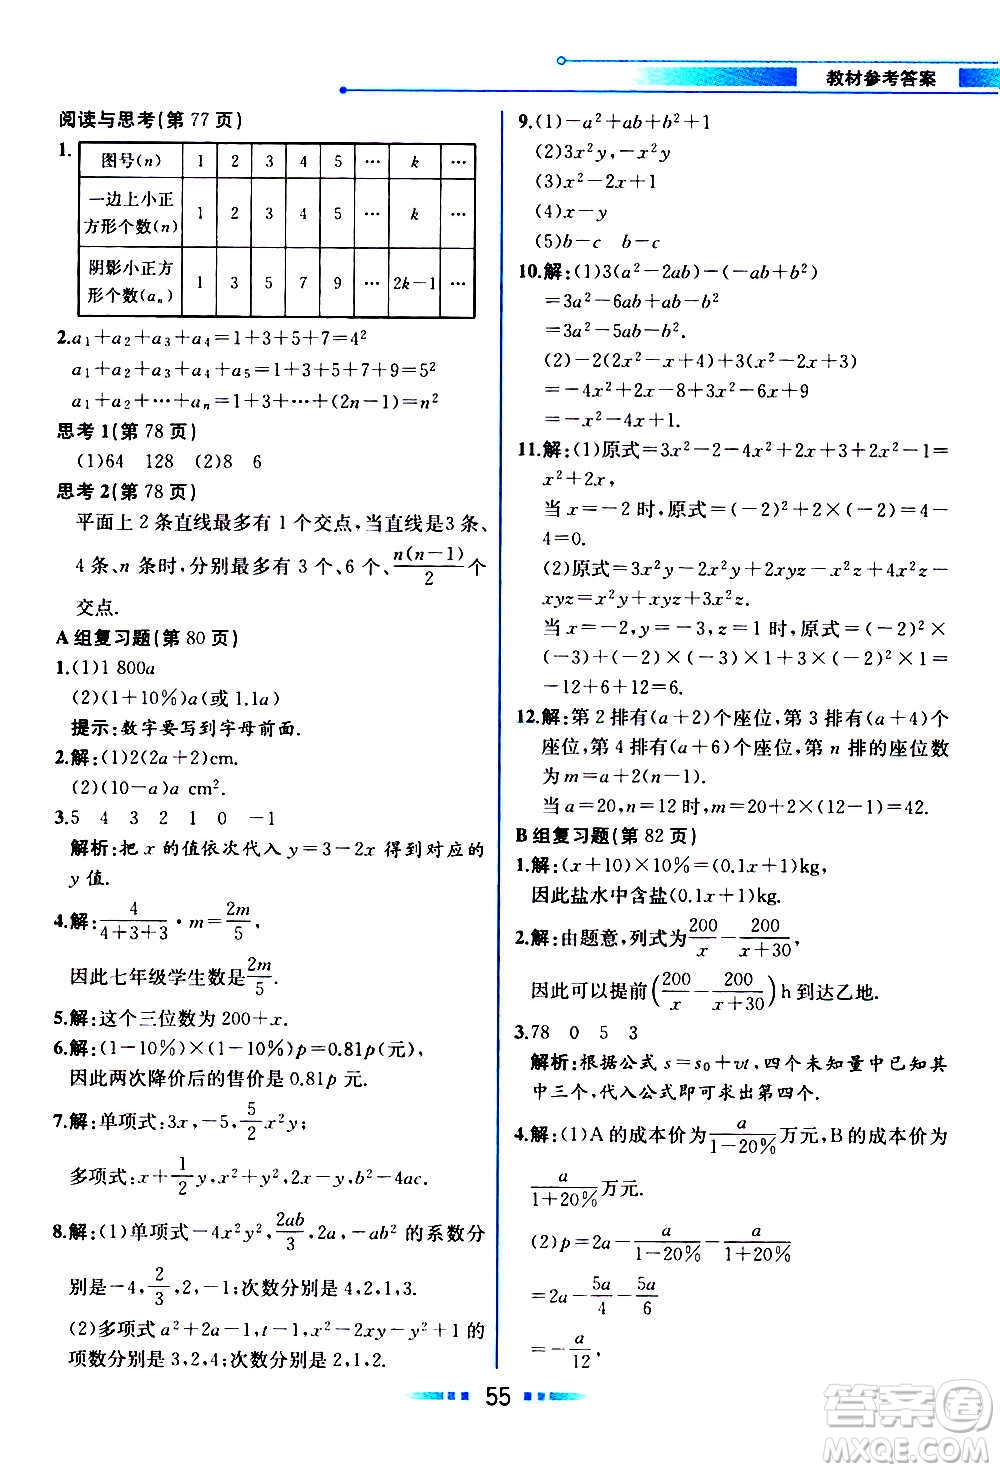 教材参考答案
阅读与思考(第 77 页)
1. 图号(n) 1 2 3 4 5 … k …
一边上小正方形个数(n) 1 2 3 4 5 … k …
阴影小正方形个数(aₙ) 1 3 5 7 9 … 2k−1 …
2.a₁+a₂+a₃+a₄=1+3+5+7=4²
a₁+a₂+a₃+a₄+a₅=1+3+5+7+9=5²
a₁+a₂+…+aₙ=1+3+…+(2n−1)=n²
思考 1(第 78 页)
(1)64 128 (2)8 6
思考 2(第 78 页)
平面上 2 条直线最多有 1 个交点,当直线是3 条、
4 条、n 条时,分别最多有 3 个、6 个、n(n−1)/2 个
交点.
A 组复习题(第 80 页)
1.(1)1 800a
(2)(1+10%)a(或 1.1a)
提示:数字要写到字母前面.
2.解:(1)2(2a+2)cm.
(2)(10−a)a cm².
3.5 4 3 2 1 0 −1
解析:把 x 的值依次代入 y=3−2x 得到对应的
y 值.
4.解:4/(4+3+3)·m=2m/5,
因此七年级学生数是2m/5.
5.解:这个三位数为 200+x.
6.解:(1−10%)×(1−10%)p=0.81p(元),
因此两次降价后的售价是 0.81p 元.
7.解:单项式:3x,−5,5/2x²y;
多项式:x+1/2y,x²+y²,x−y−1,b²−4ac.
8.解:(1)单项式−4x²y²,2ab/3,2a,−ab²的系数分
别是−4,2/3,2,−1;次数分别是 4,2,1,3.
(2)多项式 a²+2a−1,t−1,x²−2xy−y²+1 的
项数分别是 3,2,4;次数分别是 2,1,2.
9.(1)−a²+ab+b²+1
(2)3x²y,−x²y
(3)x²−x+1
(4)x−y
(5)b−c b−c
10.解:(1)3(a²−2ab)−(−ab+b²)
=3a²−6ab+ab−b²
=3a²−5ab−b².
(2)−2(2x²−x+4)+3(x²−2x+3)
=−4x²+2x−8+3x²−6x+9
=−x²−4x+1.
11.解:(1)原式=3x²−2−4x²+2x+3+2x²−1=
x²+2x,
当 x=−2 时,原式=(−2)²+2×(−2)=4−
4=0.
(2)原式=3x²y−2x²y+2xyz−x²y+3x²z−
xyz=xyz+3x²z.
当 x=−2,y=−3,z=1 时,原式=(−2)×
(−3)×1+3×(−2)²×1=
−12+6+12=6.
12.解:第 2 排有(a+2)个座位,第 3 排有(a+4)个
座位,第 4 排有(a+6)个座位,第 n 排的座位数
为 m=a+2(n−1).
当 a=20,n=12 时,m=20+2×(12−1)=42.
B 组复习题(第 82 页)
1.解:(x+10)×10%=(0.1x+1)kg,
因此盐水中含盐(0.1x+1)kg.
2.解:由题意,列式为200/x−200/(x+30),
因此可以提前(200/x−200/(x+30))h 到达乙地.
3.78 0 5 3
解析:根据公式 s=s₀+vt,四个未知量中已知其
中三个,代入公式即可求出第四个.
4.解:(1)A 的成本价为a/(1−20%)万元,B 的成本价为
a/(1+20%)万元.
(2)p=2a−a/(1−20%)−a/(1+20%)
=2a−5a/4−5a/6
=−a/12,
55
答案圈
MXQE.COM